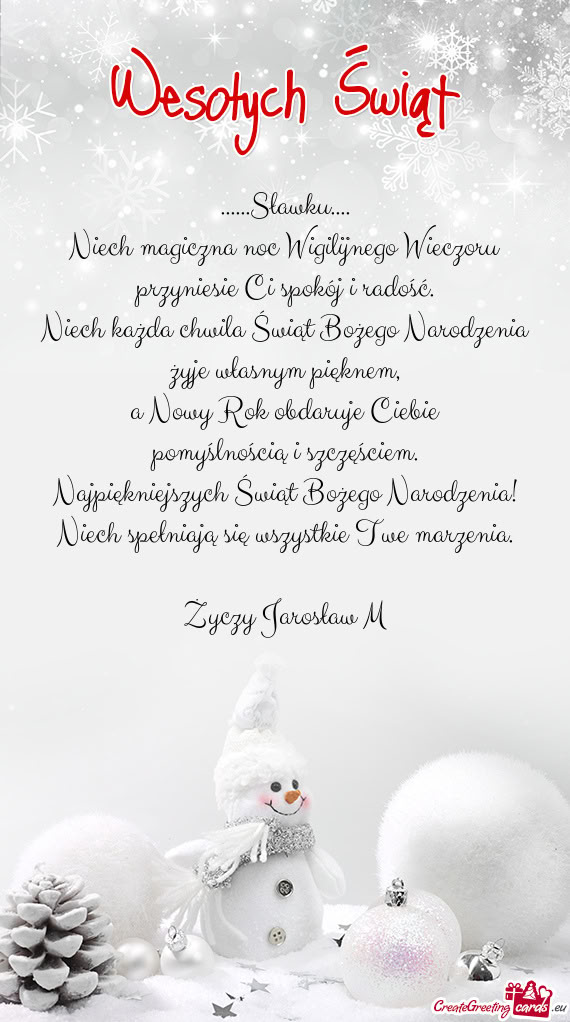 Wesołych Świąt
......Sławku....
Niech magiczna noc Wigilijnego Wieczoru
przyniesie Ci spokój i radość.
Niech każda chwila Świąt Bożego Narodzenia
żyje własnym pięknem,
a Nowy Rok obdaruje Ciebie
pomyślnością i szczęściem.
Najpiękniejszych Świąt Bożego Narodzenia!
Niech spełniają się wszystkie Twe marzenia.
Życzy Jarosław M
CreateGreetingcards.eu